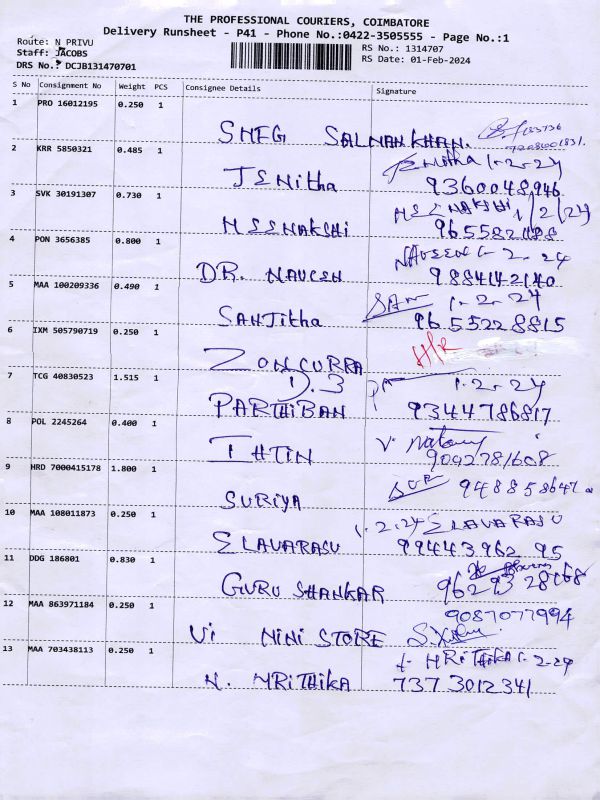 THE PROFESSIONAL COURIERS, COIMBATORE
Delivery Runsheet - P41 - Phone No.:0422-3505555 - Page No.:1
Route: N PRIVU
Staff: JACOBS
DRS No.: DCJB131470701
RS No.: 1314707
RS Date: 01-Feb-2024
S No Consignment No Weight PCS Consignee Details Signature
1 PRO 16012195 0.250 1
SNEG SALMAN KHAN.
2 KRR 5850321 0.485 1 1-2-24
JENitha 9360048946
3 SVK 30191307 0.730 1 MEENAKSHI 1/2/24
MEENAKSHI
4 PON 3656385 0.800 1 NAVEEN 1-2-24
DR. NAVEEN 9884142140
5 MAA 100209336 0.490 1 SAN 1-2-24
SANJitha 9655228815
6 IXM 505790719 0.250 1 H/R
ZONCURRA
7 TCG 40830523 1.515 1 D.3 1-2-24
PARTHIBAN 9344786817
8 POL 2245264 0.400 1
9092781608
9 HRD 7000415178 1.800 1 SUR 948858647
SURIYA
10 MAA 108011873 0.250 1 1.2.24 ELAVARASU
ELAVARASU 99443962 95
11 DDG 186801 0.830 1
GURU SHANKAR
12 MAA 863971184 0.250 1 9087077994
Vi MINI STORE
13 MAA 703438113 0.250 1 HRiTHiKA 1-2-24
N. MRiTHiKA 737 3012341